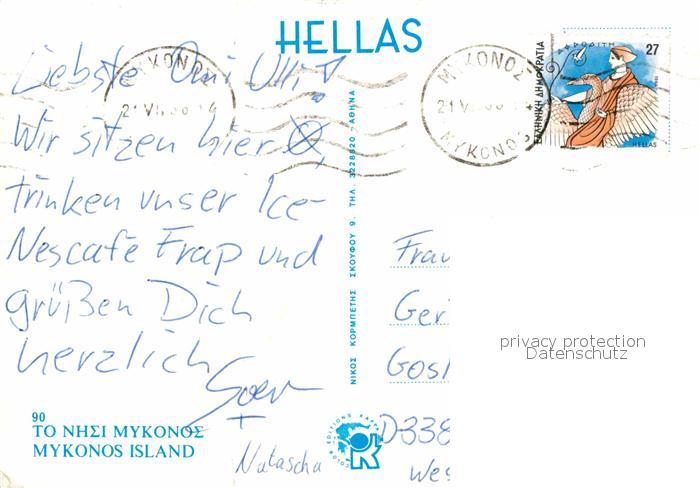 HELLAS
Liebste Omi Ulli!
Wir sitzen hier
trinken unser Ice-
Nescafé Frap und
grüßen Dich
herzlich
+
Natascha
90
ΤΟ ΝΗΣΙ ΜΥΚΟΝΟΣ
MYKONOS ISLAND
ΝΙΚΟΣ ΚΟΡΜΠΕΤΗΣ ΣΚΟΥΦΟΥ 9. ΤΗΛ. 3228820 - ΑΘΗΝΑ
ΜΥΚΟΝΟΣ
MYKONOS
ΕΛΛΗΝΙΚΗ ΔΗΜΟΚΡΑΤΙΑ
ΑΦΡΟΔΙΤΗ
27
HELLAS
Frau
Ger
Gosl
D-338
Wes
privacy protection
Datenschutz